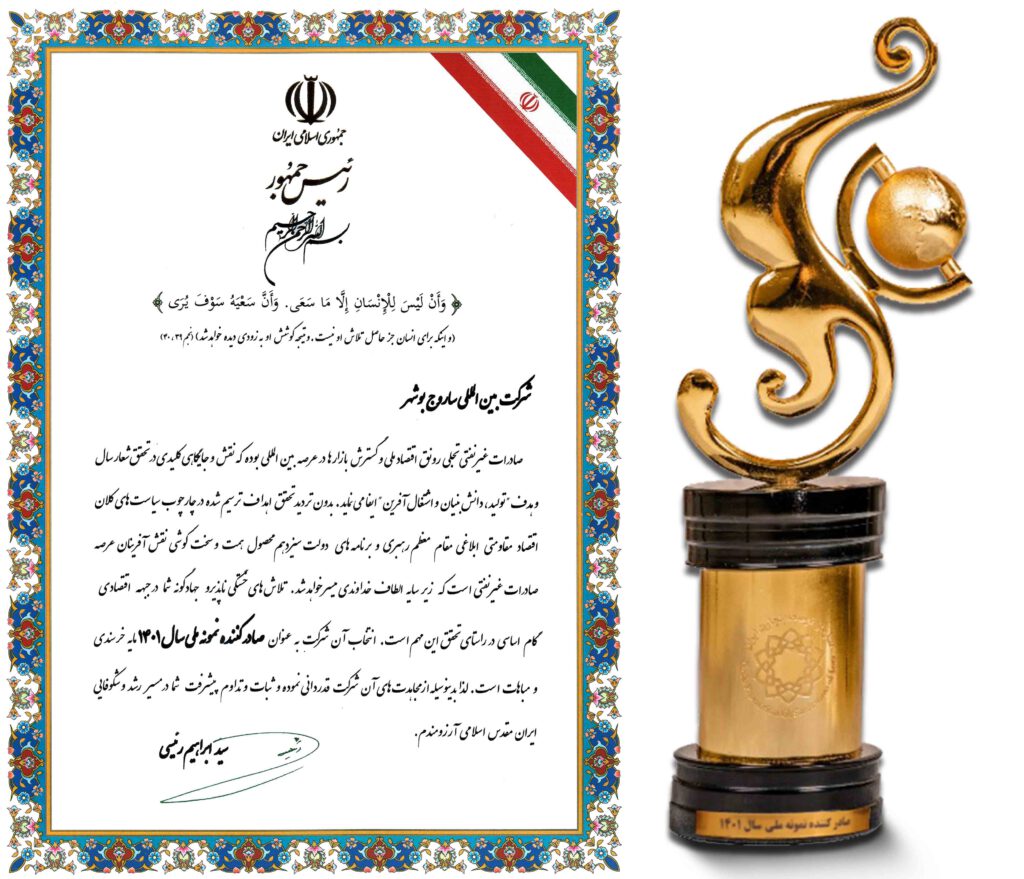 جمهوری اسلامی ایران
رئیس جمهور
بسم الله الرحمن الرحیم
﴿ وَأَنْ لَيْسَ لِلْإِنْسَانِ إِلَّا مَا سَعَى. وَأَنَّ سَعْيَهُ سَوْفَ يُرَى ﴾
(و اینکه برای انسان جز حاصل تلاش او نیست. و نتیجه کوشش او به زودی دیده خواهد شد) (نجم ۳۹، ۴۰)
شرکت بین المللی ساروج بوشهر
صادرات غیرنفتی تجلی رونق اقتصاد ملی و گسترش بازارها در عرصه بین المللی بوده که نقش و جایگاهی کلیدی در تحقق شعار سال
و هدف "تولید، دانش بنیان و اشتغال آفرین" ایفا می نماید. بدون تردید تحقق اهداف ترسیم شده در چارچوب سیاست های کلان
اقتصاد مقاومتی ابلاغی مقام معظم رهبری و برنامه های دولت سیزدهم محصول همت و سخت کوشی نقش آفرینان عرصه
صادرات غیرنفتی است که زیر سایه الطاف خداوندی میسر خواهد شد. تلاش های خستگی ناپذیر و جهادگونه شما در جبهه اقتصادی
گام اساسی در راستای تحقق این مهم است. انتخاب آن شرکت به عنوان صادرکننده نمونه ملی سال ۱۴۰۱ مایه خرسندی
و مباهات است. لذا بدینوسیله از مجاهدت های آن شرکت قدردانی نموده و ثبات و تداوم پیشرفت شما در مسیر رشد و شکوفایی
ایران مقدس اسلامی آرزومندم.
سید ابراهیم رئیسی
صادر کننده نمونه ملی سال ۱۴۰۱